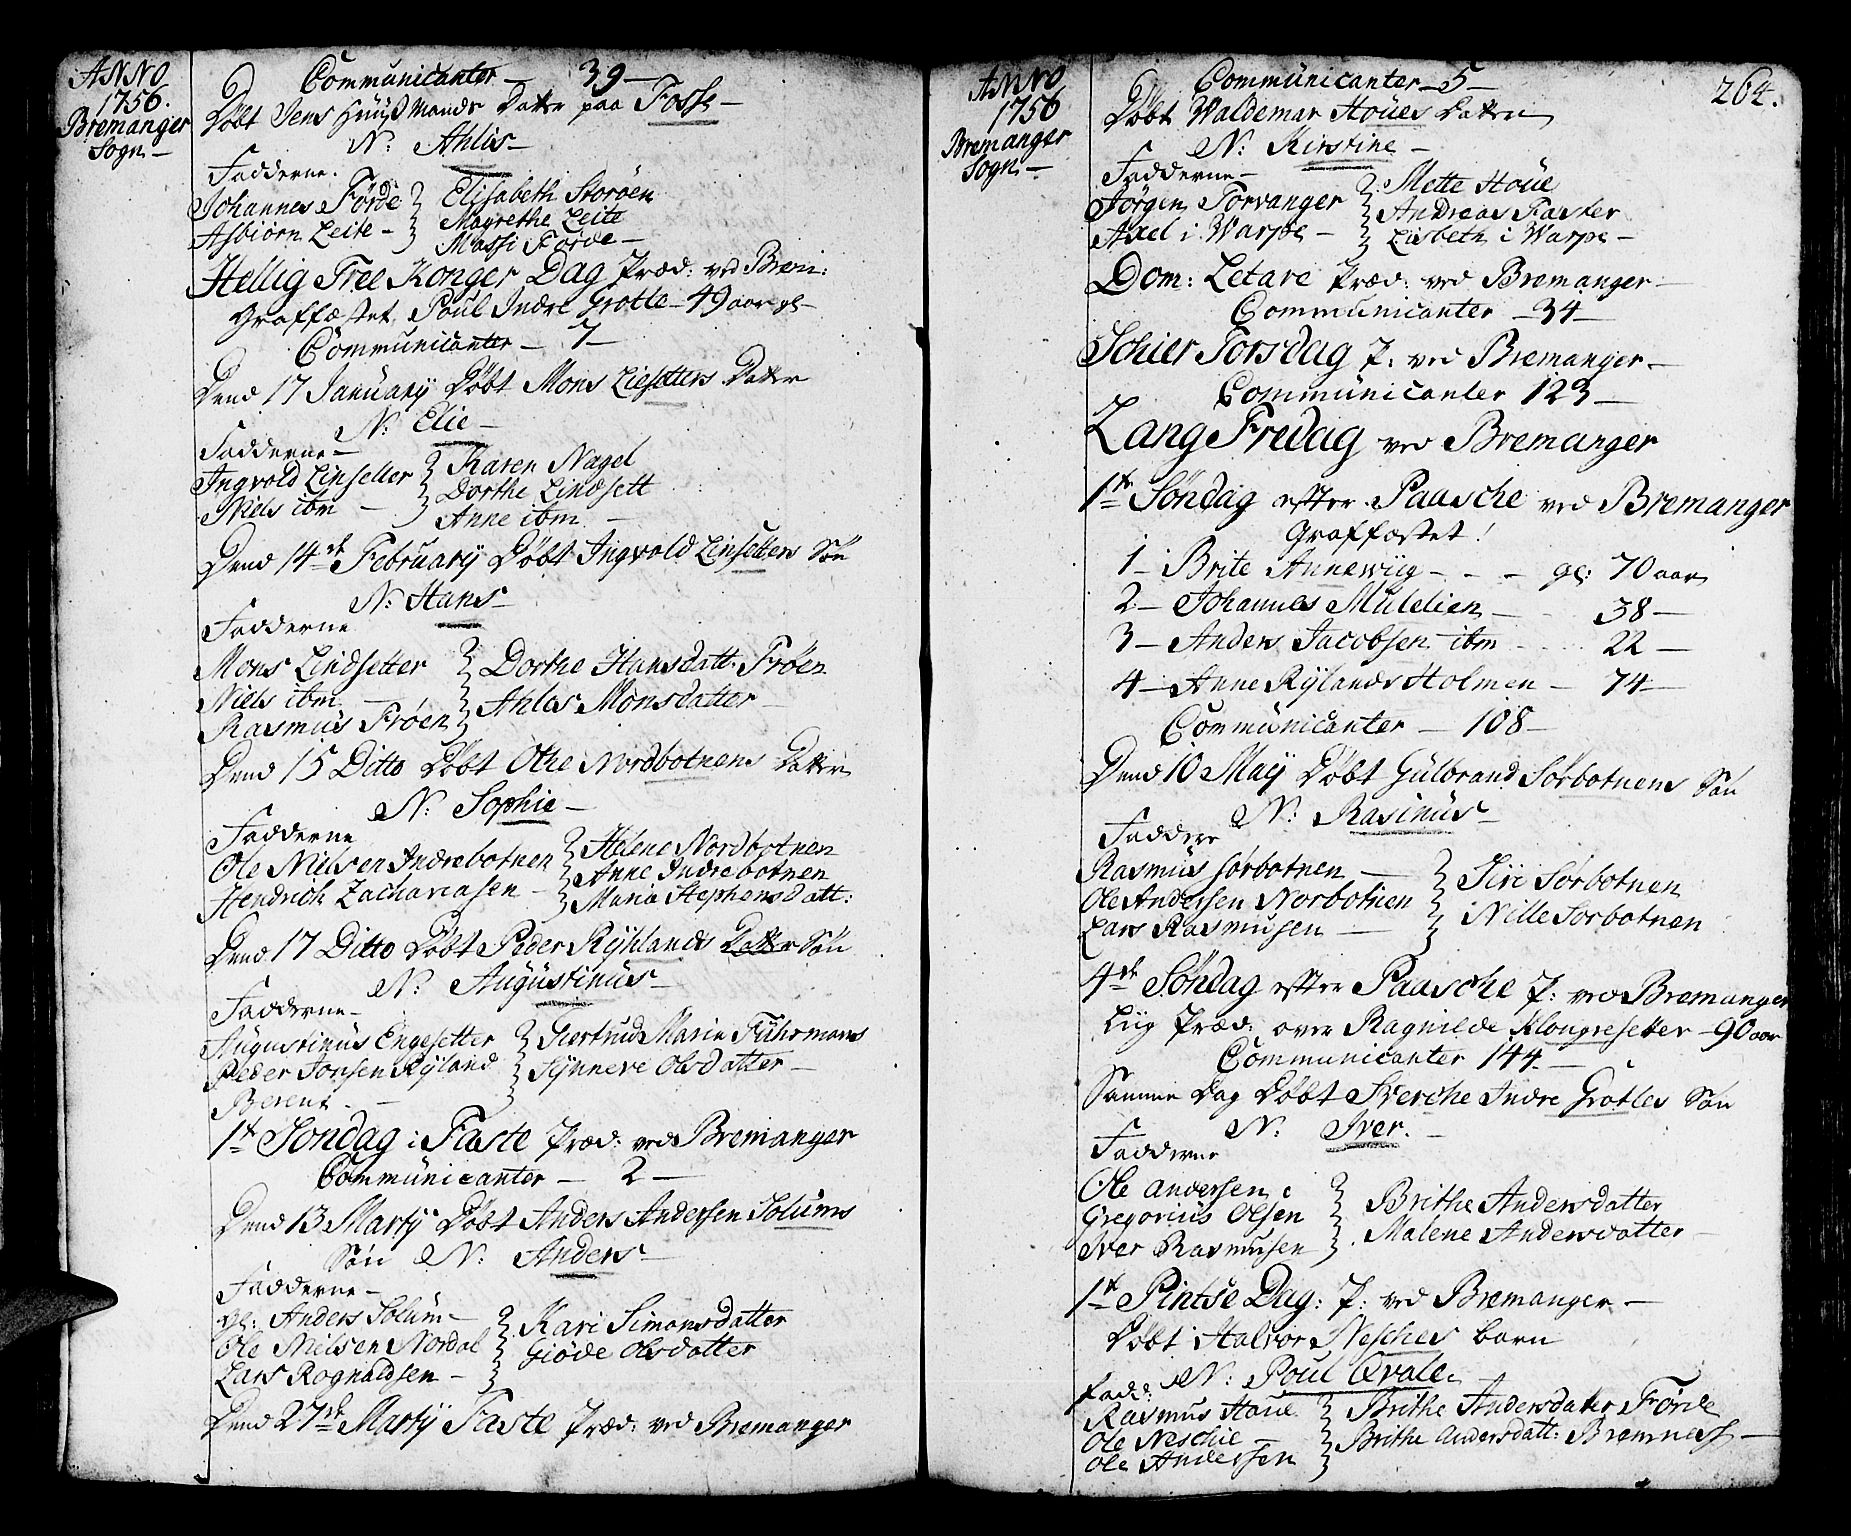 ANNO
1756.
Bremanger
Sogn —
Communicanter — 39 —
Døbt Jens Huusmands Datter paa Fosse —
N: Ahlis —
Fadderne.
Johannes Førde } Elisabeth Storøen
Asbiørn Leite — } Magrethe Leite
Massi Førde —
Hellig Tree Konger Dag Præd: ved Brem:
Graffæstet Poul Indre Grotle — 49 aar gl —
Communicanter — 7 —
Dend 17 Januarij Døbt Mons Liesetters Datter
N: Elie —
Fadderne —
Ingvold Linsetter } Karen Nagel
Niels ibm — } Dorthe Lindsett
Anne ibm —
Dend 14de February Døbt Ingvold Linsetters Søn
N: Hans —
Fadderne
Mons Lindsetter } Dorthe Hansdatt: Frøen
Niels ibm — } Ahlis Monsdatter —
Rasmus Frøen }
Dend 15 Ditto Døbt Othe Nordbotnens Datter
N: Sophie —
Fadderne
Ole Nielsen Indrebotnen } Helene Nordbotnen
Hendrich Zachariasen — } Anne Indrebotnen
Maria Stephensdatt:
Dend 17 Ditto Døbt Peder Rÿhlands Datter Søn
N: Augustinus —
Fadderne —
Augustinus Engesetter } Giertrud Maria Fuhrmans
Peder Jonsen Rÿland } Sÿnneve Olsdatter —
Berent —
1te Søndag i Faste Præd: ved Bremanger
Communicanter — 2 —
Dend 13 Martij Døbt Anders Andersen Solums
Søn N: Anders —
Fadderne —
gl: Anders Solum — } Kari Simonsdatter
Ole Nielsen Nordal } Giøde Olsdatter
Lars Rognaldsen — }
Dend 27de Martij Faste Præd: ved Bremanger
ANNO
1756
Bremanger
Sogn —
264.
Communicanter — 5 —
Døbt Waldemar Houes Datter
N: Kirstine —
Fadderne —
Jørgen Torvanger } Mette Houe
Axel i Warpe — } Andreas Faster
Lisbeth i Warpe —
Dom: Letare Præd: ved Bremanger —
Communicanter — 34 —
Schier Torsdag P: ved Bremanger —
Communicanter 123 —
Lang Fredag ved Bremanger
1te Søndag efter Paasche ved Bremanger
Graffæstet!
1 — Brite Annewiig — — — gl: 70 aar
2 — Johannes Mulelien — 38 —
3 — Anders Jacobsen ibm 22 —
4 — Anne Rÿlands Holmen — 74 —
Communicanter — 108 —
Dend 10 Maij Døbt Gulbrand Sørbotnens Søn
N: Rasmus —
Faddere
Rasmus Sørbotnen — } Siri Sørbotnen
Ole Andersen Norbotnen } Nille Sørbotnen
Lars Rasmusen — }
4de Søndag efter Paasche P: ved Bremanger
Liig Præd: over Ragnilde Klongresetter — 90 aar
Communicanter 144. —
Samme Dag Døbt Sverche Indre Grotles Søn
N: Iver. —
Fadderne
Ole Andersen } Brithe Andersdatter
Gregorius Olsen } Malene Andersdatter —
Iver Rasmusen }
1te Pintse Dag: P: ved Bremanger —
Døbt Halvor Nesches barn
N: Poul Qvale.
Fadd:
Rasmus Houe } Brithe Andersdatter Førde
Ole Neschie — } Brithe Andersdatt: Bremnes —
Ole Andersen }